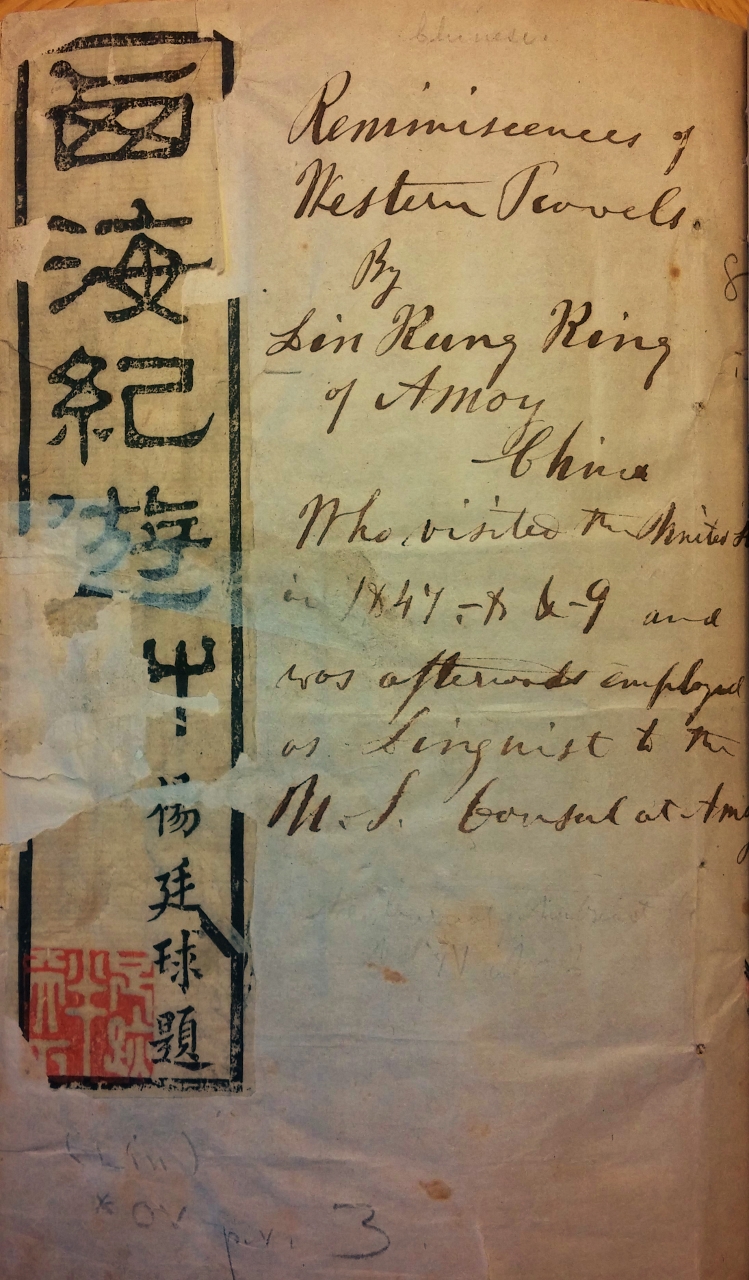 Chinese.
西海紀遊屮
楊廷球題
Reminiscences of
Western Travels.
By
Lin King King
of Amoy
China
Who visited the United
in 1847-8 & -9 and
was afterwards employed
as Linguist to the
U. S. Consul at Amoy
(Lin)
*OV p.v. 3